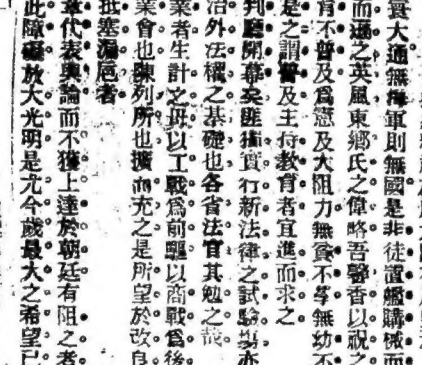 實大通無海軍則無國是非徒置艦購械而
而遜之英風東鄉氏之偉略吾馨香以祝之
育不普及爲憲及大阻力無貧不學無幼不
是之謂普及主持教育者宜進而求之
判廳開幕矣匪獨實行新法律之試驗場亦
治外法權之基礎也各省法官其勉之哉
業者生計之母以工戰爲前驅以商戰爲後
業會也陳列所也擴而充之是所望於改良
抵塞漏卮者
章代表輿論而不獲上達於朝廷有阻之者
此障礙放大光明是尤今歲最大之希望已